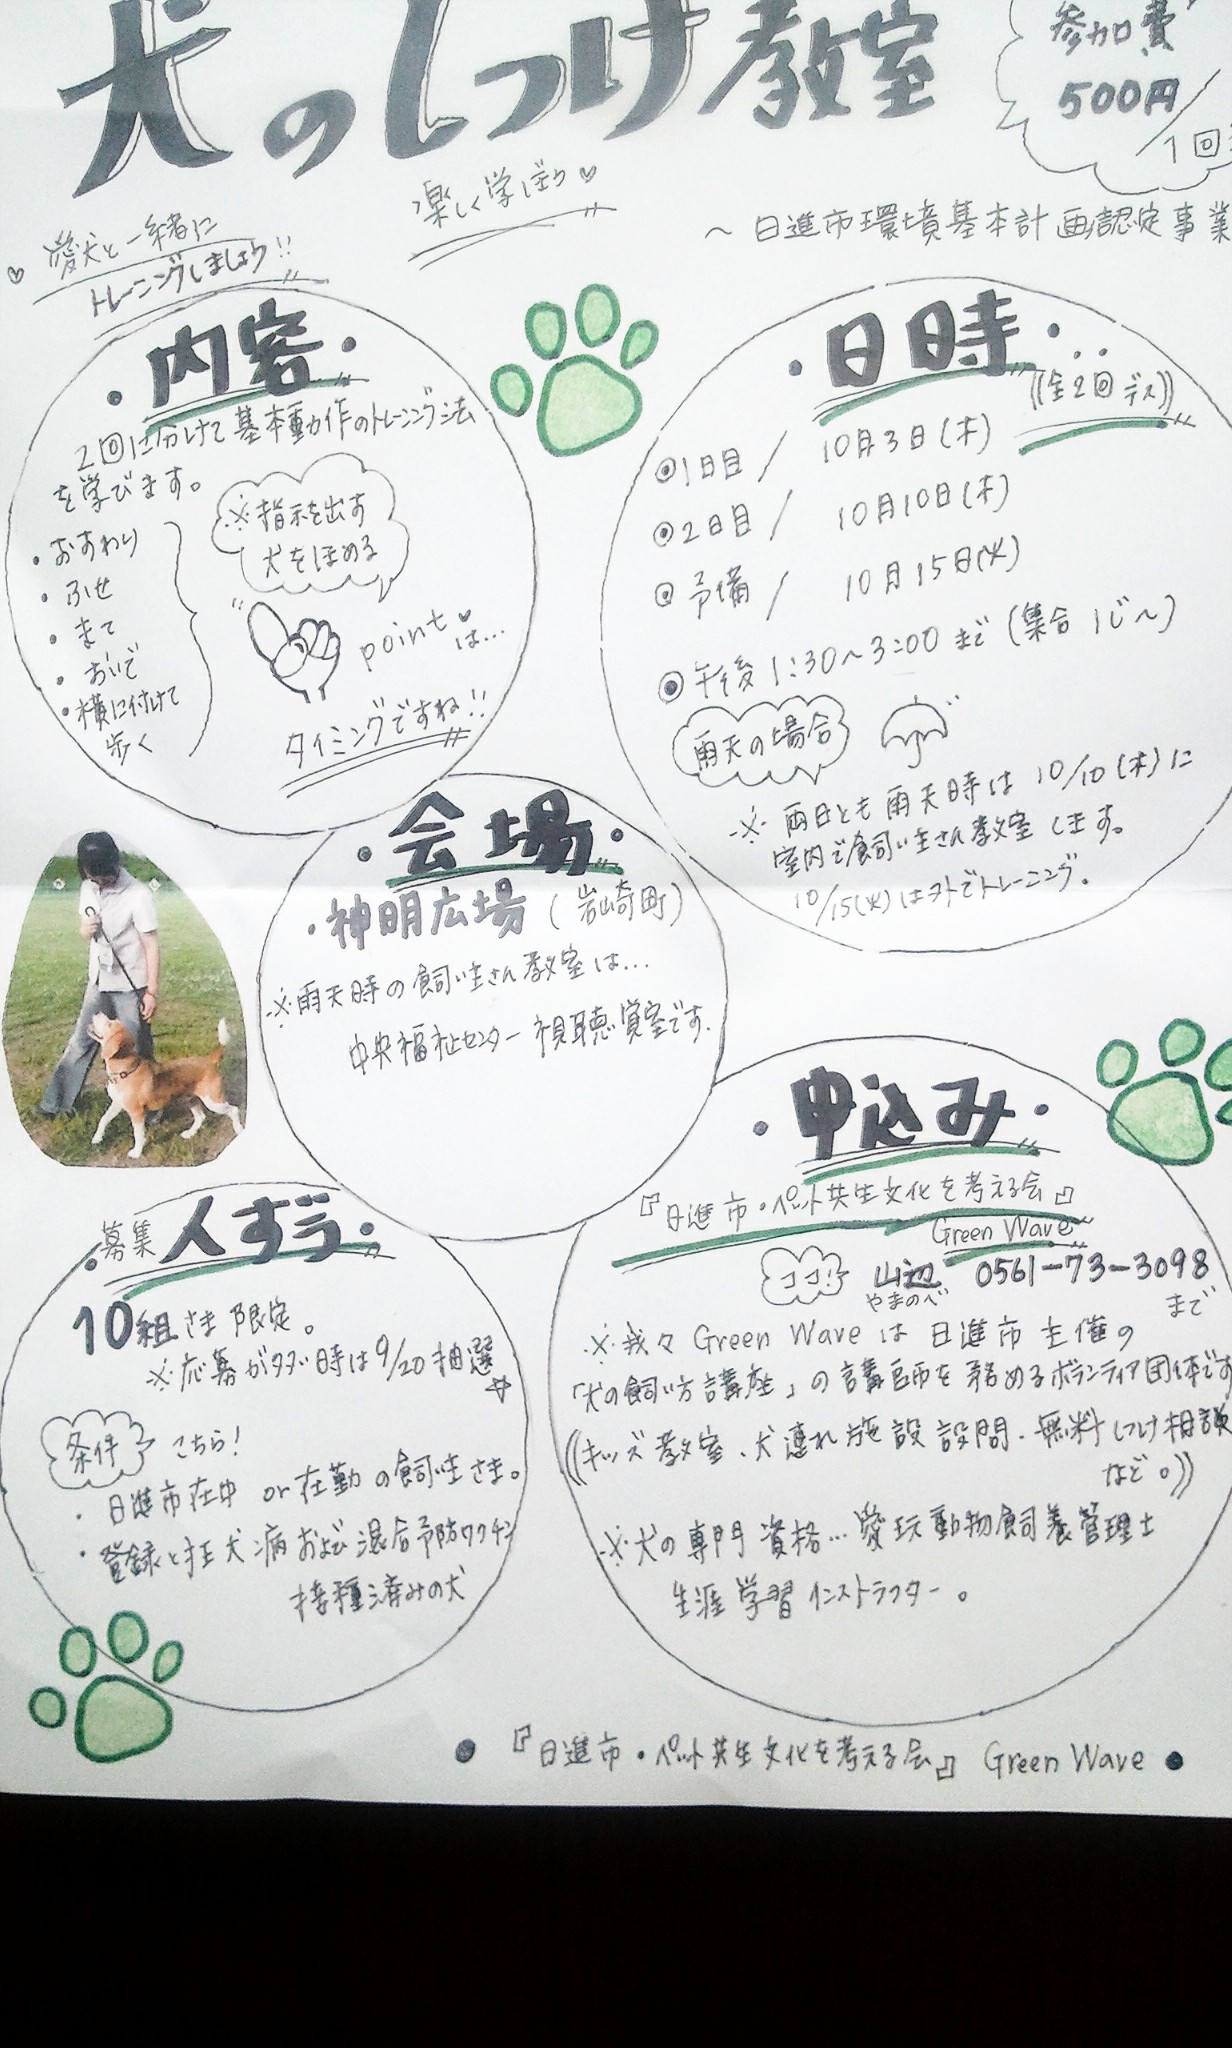 犬のしつけ教室
参加費
500円/
1回
愛犬と一緒に
トレーニングしましょう!!
楽しく学ぼう♡
～日進市環境基本計画認定事業
・内容・
2回に分けて基本動作のトレーニング法
を学びます。
・おすわり
・ふせ
・まて
・おいで
・横に付けて
歩く
※指示を出す
犬をほめる
pointは…
タイミングですね!!
・日時・
((全2回デス))
◎1日目/ 10月3日(木)
◎2日目/ 10月10日(木)
◎予備/ 10月15日(火)
◎午後1:30～3:00まで(集合1じ～)
雨天の場合
※両日とも雨天時は10/10(木)に
室内で飼い主さん教室します。
10/15(火)はヲトでトレーニング。
・会場・
・神明広場(岩崎町)
※雨天時の飼い主さん教室は…
中央福祉センター視聴覚室です.
・申込み・
『日進市・ペット共生文化を考える会』
Green Wave
ココ! 山辺 0561-73-3098
やまのべ まで
※我々Green Waveは日進市主催の
「犬の飼い方講座」の講師を務めるボランティア団体です
((キッズ教室、犬連れ施設設問.無料しつけ相談
など。))
※犬の専門資格…愛玩動物飼養管理士
生涯学習インストラクター。
・募集人ずう・
10組さま限定。
※応募がタダイ時は9/20抽選
条件 こちら!
・日進市在中or在勤の飼い主さま。
・登録と狂犬病および混合予防ワクチン
接種済みの犬
●『日進市・ペット共生文化を考える会』 Green Wave●